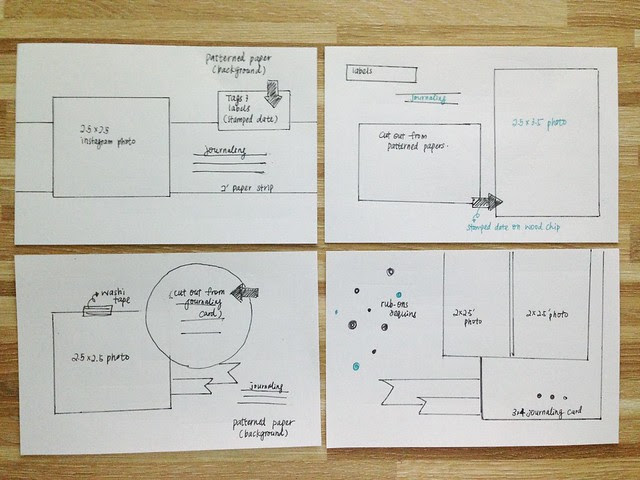 patterned paper
(background)
Tags &
labels
(stamped date)
2.5 x 2.5
instagram photo
journaling
2' paper strip
labels
journaling
2.5 x 3.5 photo
cut out from
patterned papers.
stamped date on wood chip
washi
tape
(cut out from
journaling
card)
2.5 x 2.5 photo
journaling
patterned paper
(background)
rub-ons
sequins
2x2.5'
photo
2x2.5' photo
3x4 journaling card